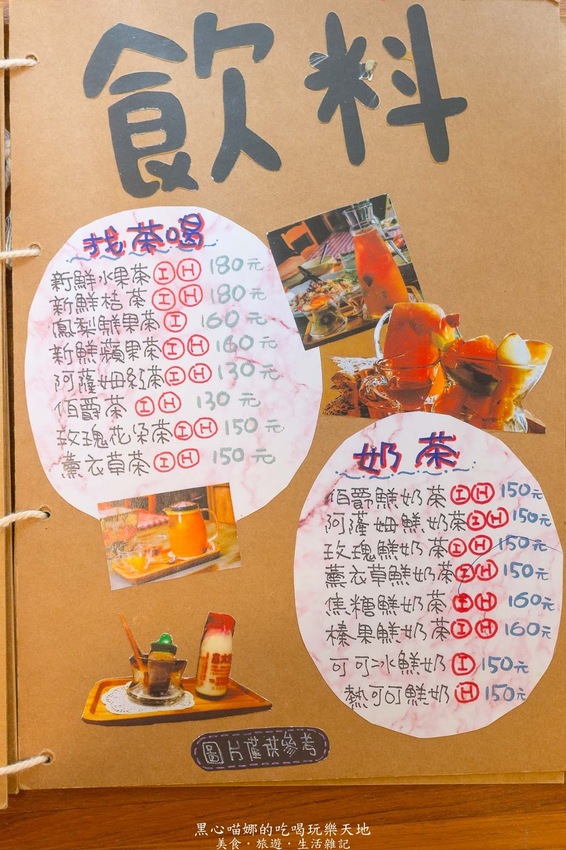 飲料
找茶喝
新鮮水果茶 I H 180元
新鮮桔茶 I H 180元
鳳梨鮮果茶 I 160元
新鮮蘋果茶 I H 160元
阿薩姆紅茶 I H 130元
伯爵茶 I H 130元
玫瑰花朵茶 I H 150元
薰衣草茶 I H 150元
奶茶
伯爵鮮奶茶 I H 150元
阿薩姆鮮奶茶 I H 150元
玫瑰鮮奶茶 I H 150元
薰衣草鮮奶茶 I H 150元
焦糖鮮奶茶 I H 160元
榛果鮮奶茶 I H 160元
可可冰鮮奶 I 150元
熱可可鮮奶 H 150元
圖片僅供參考
黑心喵娜的吃喝玩樂天地
美食·旅遊·生活雜記